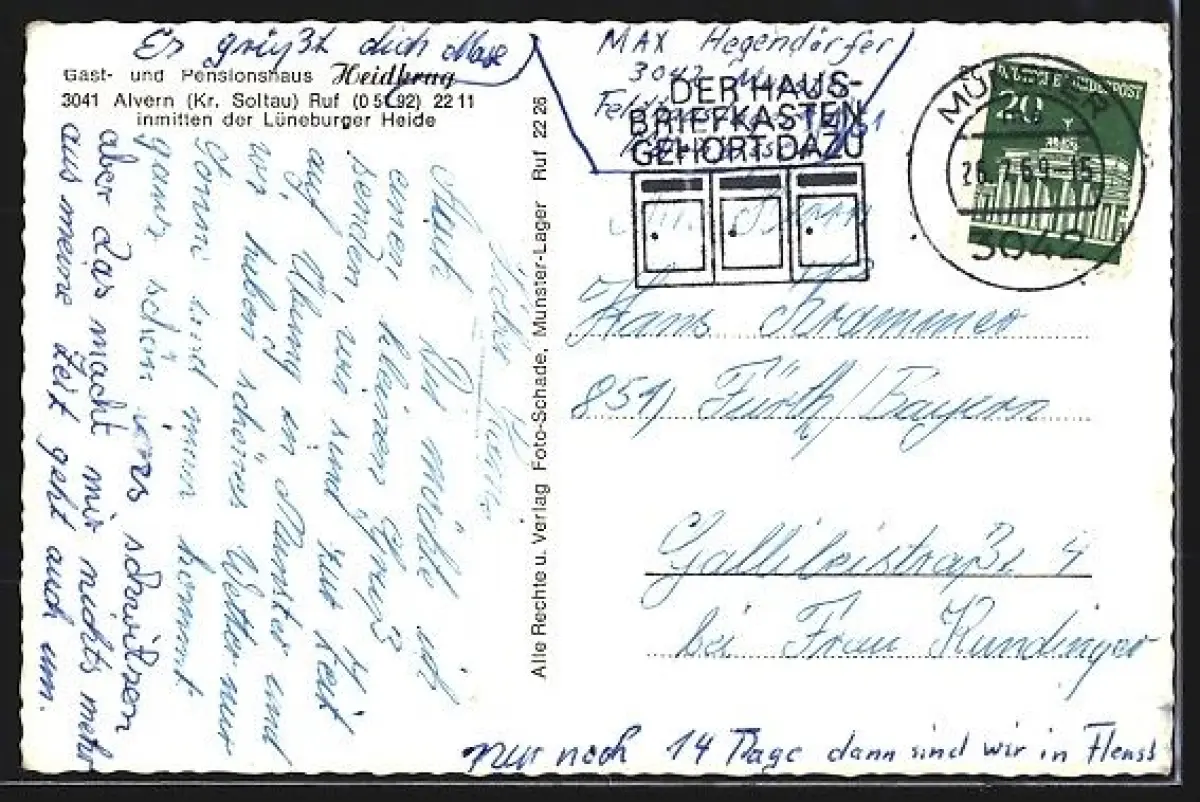 Es grüßt dich
Gast- und Pensionshaus Heidkrug
3041 Alvern (Kr. Soltau) Ruf (0 51 92) 22 11
inmitten der Lüneburger Heide
Auch Dir möchte ich
einen kleinen Gruß
senden, wir sind zur Zeit
auf Übung in Munster und
wir haben schönes Wetter nur
Sonne und man kommt
ganz schön ins schwitzen
aber das macht mir nichts mehr
aus meine Zeit geht auch um.
Nur noch 14 Tage dann sind wir in Flensb
Alle Rechte u. Verlag Foto-Schade, Munster-Lager Ruf 22 26
MAX Hegendörfer
3042
DER HAUS-
BRIEFKASTEN
GEHÖRT DAZU
MUNSTER
26.7.69-15
3042
DEUTSCHE BUNDESPOST
20
Hans Krammer
851 Fürth/Bayern
Gallileistraße 4
bei Frau Kundinger